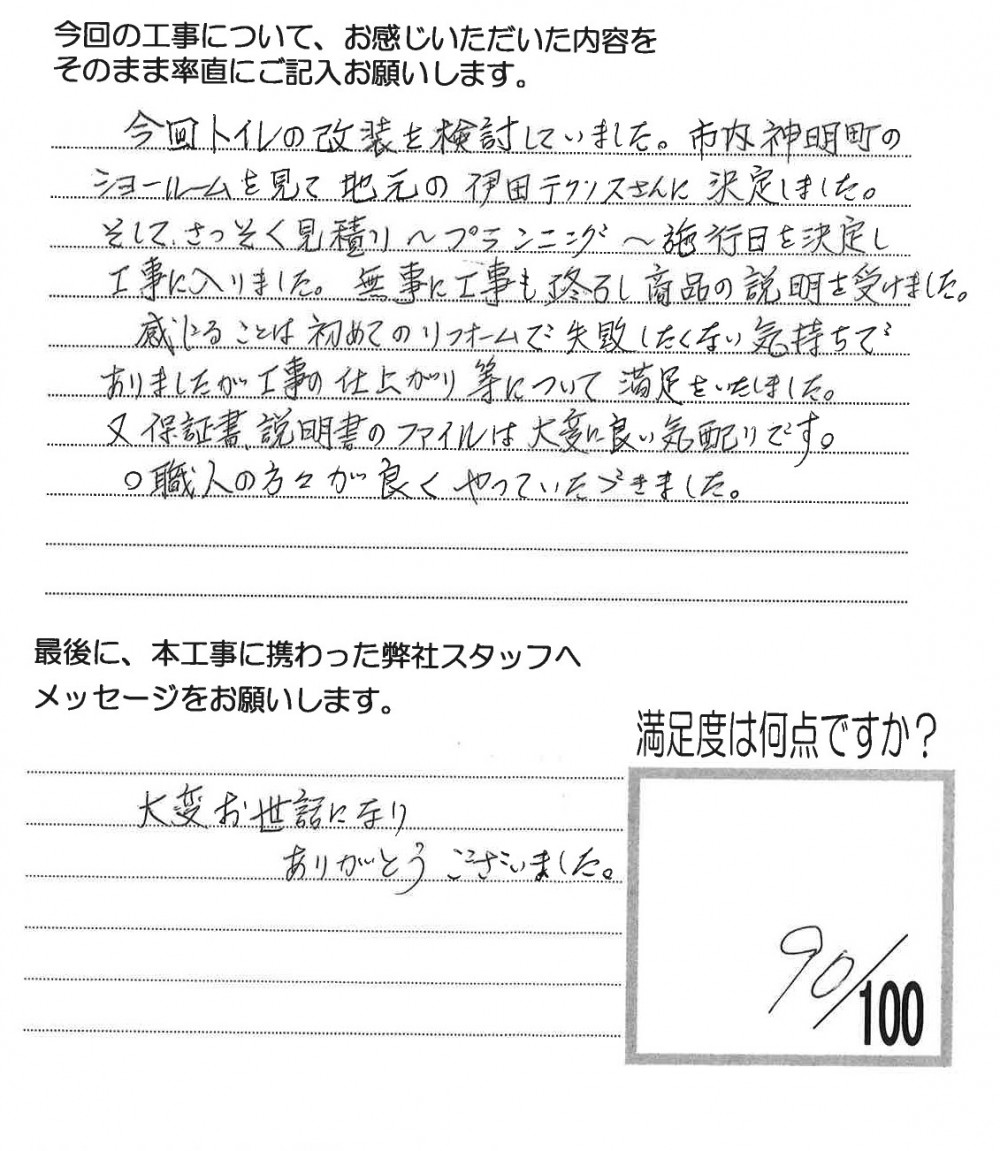 今回の工事について、お感じいただいた内容を
そのまま率直にご記入お願いします。
今回トイレの改装を検討していました。市内神明町の
ショールームを見て地元の伊田テクノスさんに決定しました。
そして、さっそく見積り～プランニング～施行日を決定し
工事に入りました。無事に工事も終了し商品の説明を受けました。
感じることは初めてのリフォームで失敗したくない気持ちで
ありましたが工事の仕上がり等について満足をいたしました。
又保証書、説明書のファイルは大変に良い気配りです。
○職人の方々が良くやっていたゞきました。
最後に、本工事に携わった弊社スタッフへ
メッセージをお願いします。
大変お世話になり
ありがとうございました。
満足度は何点ですか？
90/100